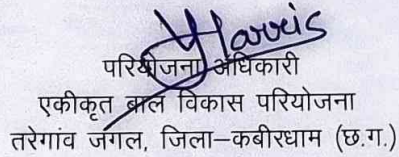 Harris
परियोजना अधिकारी
एकीकृत बाल विकास परियोजना
तरेगांव जंगल, जिला–कबीरधाम (छ.ग.)